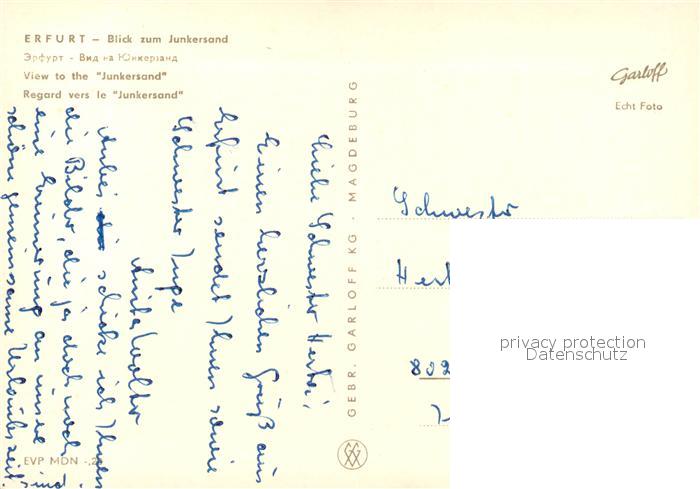 ERFURT – Blick zum Junkersand
Эрфурт - Вид на Юнкерзанд
View to the "Junkersand"
Regard vers le "Junkersand"
Garloff
Echt Foto
GEBR. GARLOFF KG · MAGDEBURG
Liebe Schwester Herta,
Einen herzlichen Gruß aus
Erfurt sendet Ihnen sowie
Schwester Inge
Anita Walter
Anbei schicke ich Ihnen
die Bilder, die ja doch noch
eine Erinnerung an unsere
schöne gemeinsame Urlaubszeit sind.
Schwester
Her
802
EVP MDN -,2
privacy protection
Datenschutz